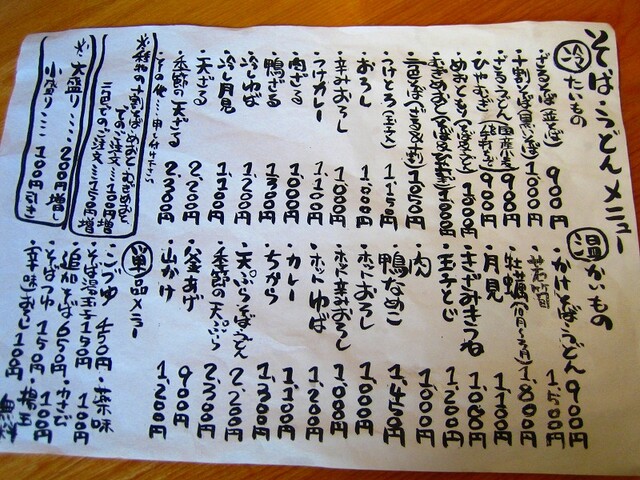 そば・うどんメニュー
冷たいもの
・ざるそば(並そば) 900円
・十割そば(黒いそば) 1,000円
・ざるうどん 900円
・ひやむぎ 900円
・めおともり 1,000円
・むぎめおと 1000円
1050円
・つけとろ(玉子入) 1,150円
・おろし 1,000円
・辛みおろし 1,000円
・つけカレー 1,100円
・肉ざる 1,000円
・鴨ざる 1,300円
・冷しゆば 1,200円
・冷し月見 1,100円
・天ざる 2,200円
・季節の天ざる 2,300円
・その他…申し付け下さい
※種物の十割そば めおと むぎめおと
でのご注文…150円増
三色でのご注文…150円増
※大盛り……200円増し
小盛り……100円引き
温かいもの
・かけそば・うどん 900円
1,500円
・牡蠣(10月〜3月) 1,800円
・月見 1,100円
・きざみきつね 1,000円
・玉子とじ 1,200円
・肉 1,000円
・鴨なめこ 1,450円
・ホットおろし 1,000円
・ホット辛みおろし 1,000円
・ホットゆば 1,200円
・カレー 1,100円
・ちから 1,300円
・天ぷらそば・うどん 2,200円
・季節の天ぷら 2,300円
・釜あげ 900円
・山かけ 1,200円
単品メニュー
・こづゆ 450円
・そば湯玉子 150円
・追加そば 650円
・そばつゆ 150円
・辛味おろし 100円
・薬味 100円
・わさび 100円
・揚玉 無料